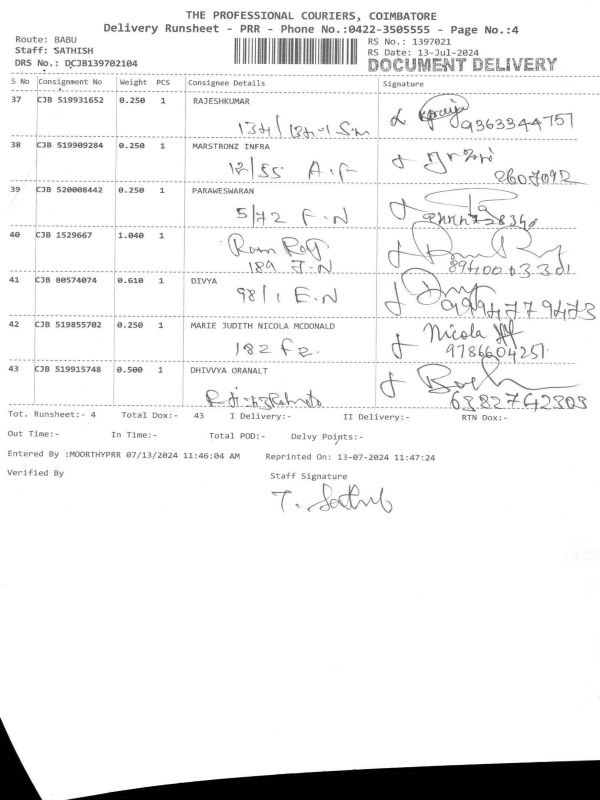 THE PROFESSIONAL COURIERS, COIMBATORE
Delivery Runsheet - PRR - Phone No.:0422-3505555 - Page No.:4
Route: BABU
RS No.: 1397021
Staff: SATHISH
RS Date: 13-Jul-2024
DRS No.: DCJB139702104
DOCUMENT DELIVERY
S No Consignment No Weight PCS Consignee Details Signature
37 CJB 519931652 0.250 1 RAJESHKUMAR
9363344757
38 CJB 519909284 0.250 1 MARSTRONZ INFRA
12/55 A.F
2607092
39 CJB 520008442 0.250 1 PARAWESWARAN
5/72 F.N
40 CJB 1529667 1.040 1
Ram Raj
189 J.N
41 CJB 80574074 0.610 1 DIVYA
98/1 E.N
9994779473
42 CJB 519855702 0.250 1 MARIE JUDITH NICOLA MCDONALD
Nicola
182 F2.
9786604251
43 CJB 519915748 0.500 1 DHIVVYA ORANALT
6382742303
Tot. Runsheet:- 4 Total Dox:- 43 I Delivery:- II Delivery:- RTN Dox:-
Out Time:- In Time:- Total POD:- Delvy Points:-
Entered By :MOORTHYPRR 07/13/2024 11:46:04 AM Reprinted On: 13-07-2024 11:47:24
Verified By Staff Signature
T. Sathish